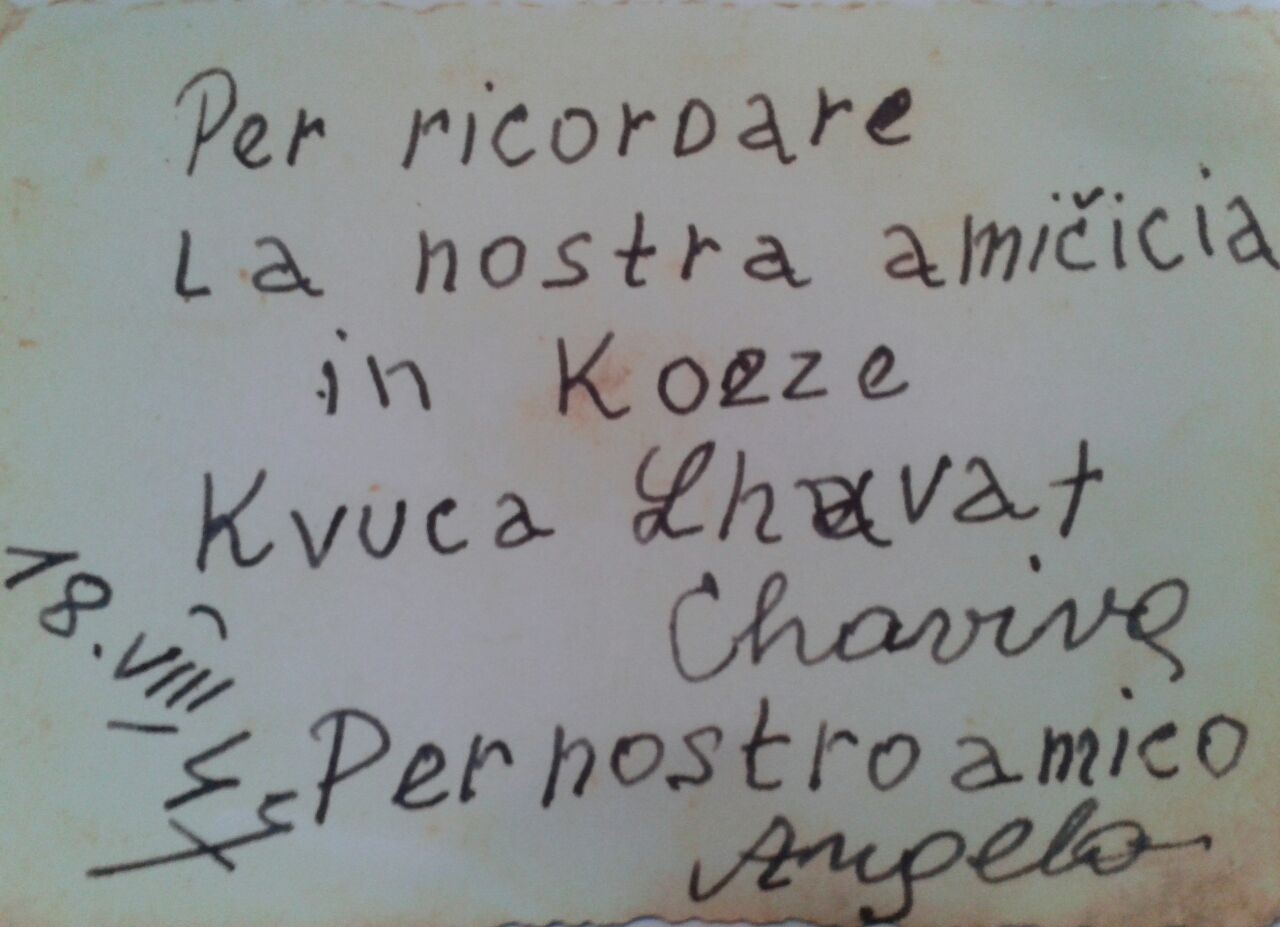 Per ricordare
La nostra amičicia
in Kozze
Kvuca Lhavat
Chaviva
18. VIII
Per nostro amico
Angelo